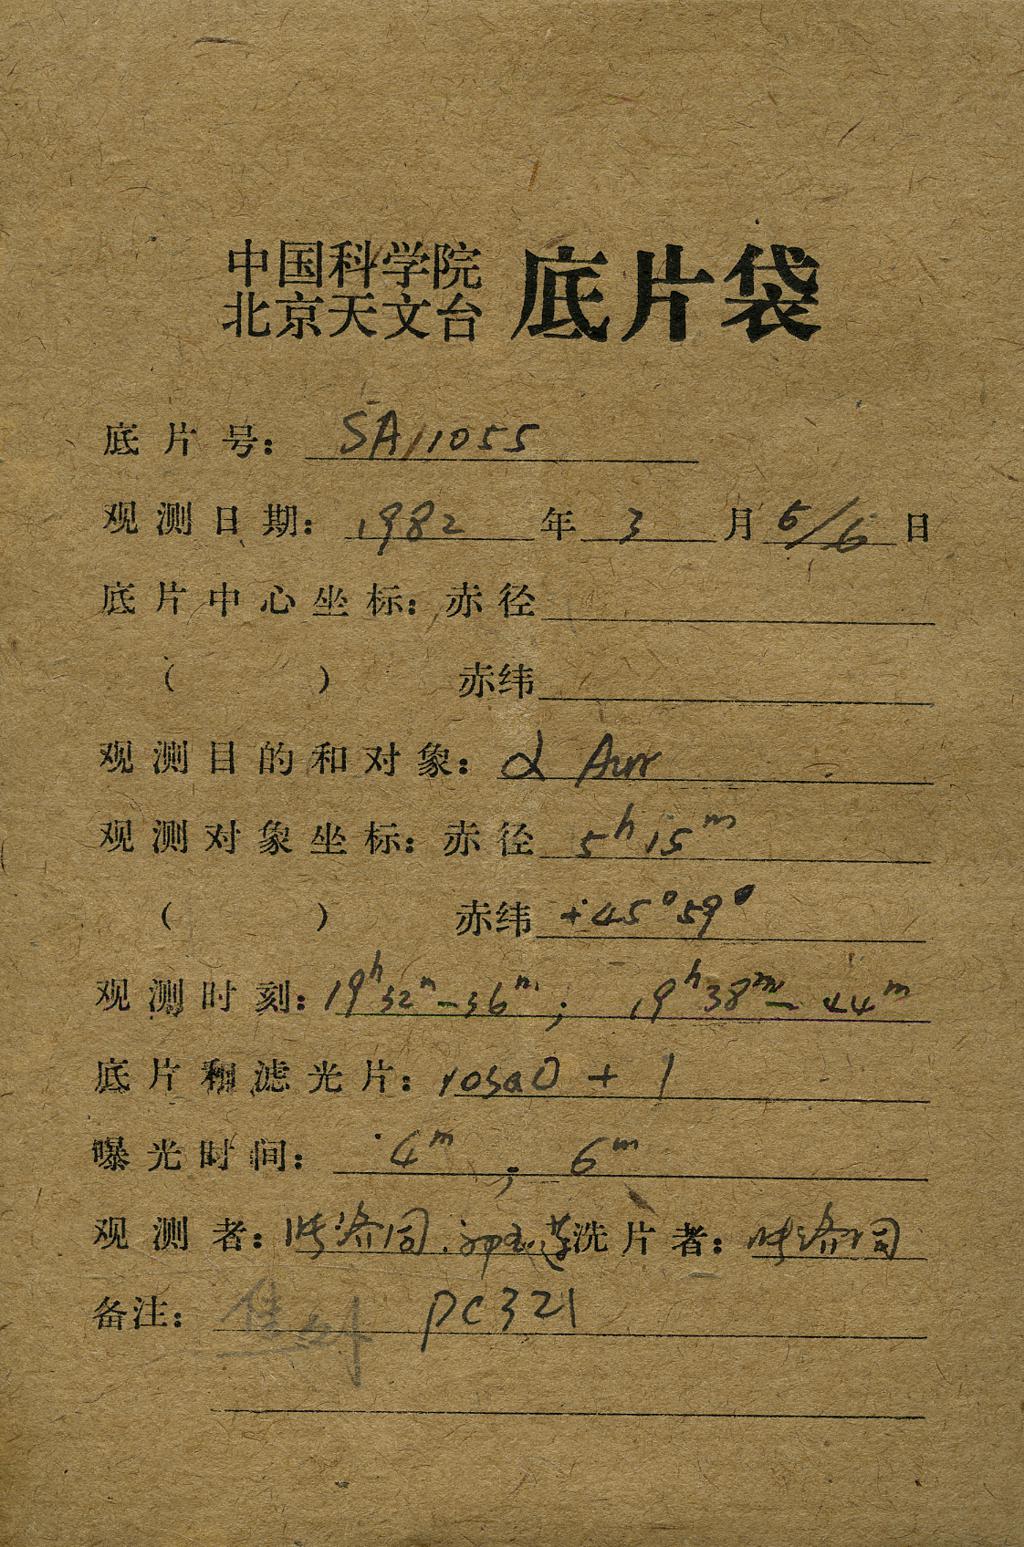 中国科学院
北京天文台 底片袋
底片号: SA11055
观测日期: 1982 年 3 月 5/6 日
底片中心坐标: 赤径
( ) 赤纬
观测目的和对象: α Aur
观测对象坐标: 赤径 5h15m
( ) 赤纬 +45°59°
观测时刻: 19h32m-36m; 19h38m-44m
底片和滤光片: 103aO + 1
曝光时间: 4m, 6m
观测者: 洗片者:
备注: 焦外 pc321